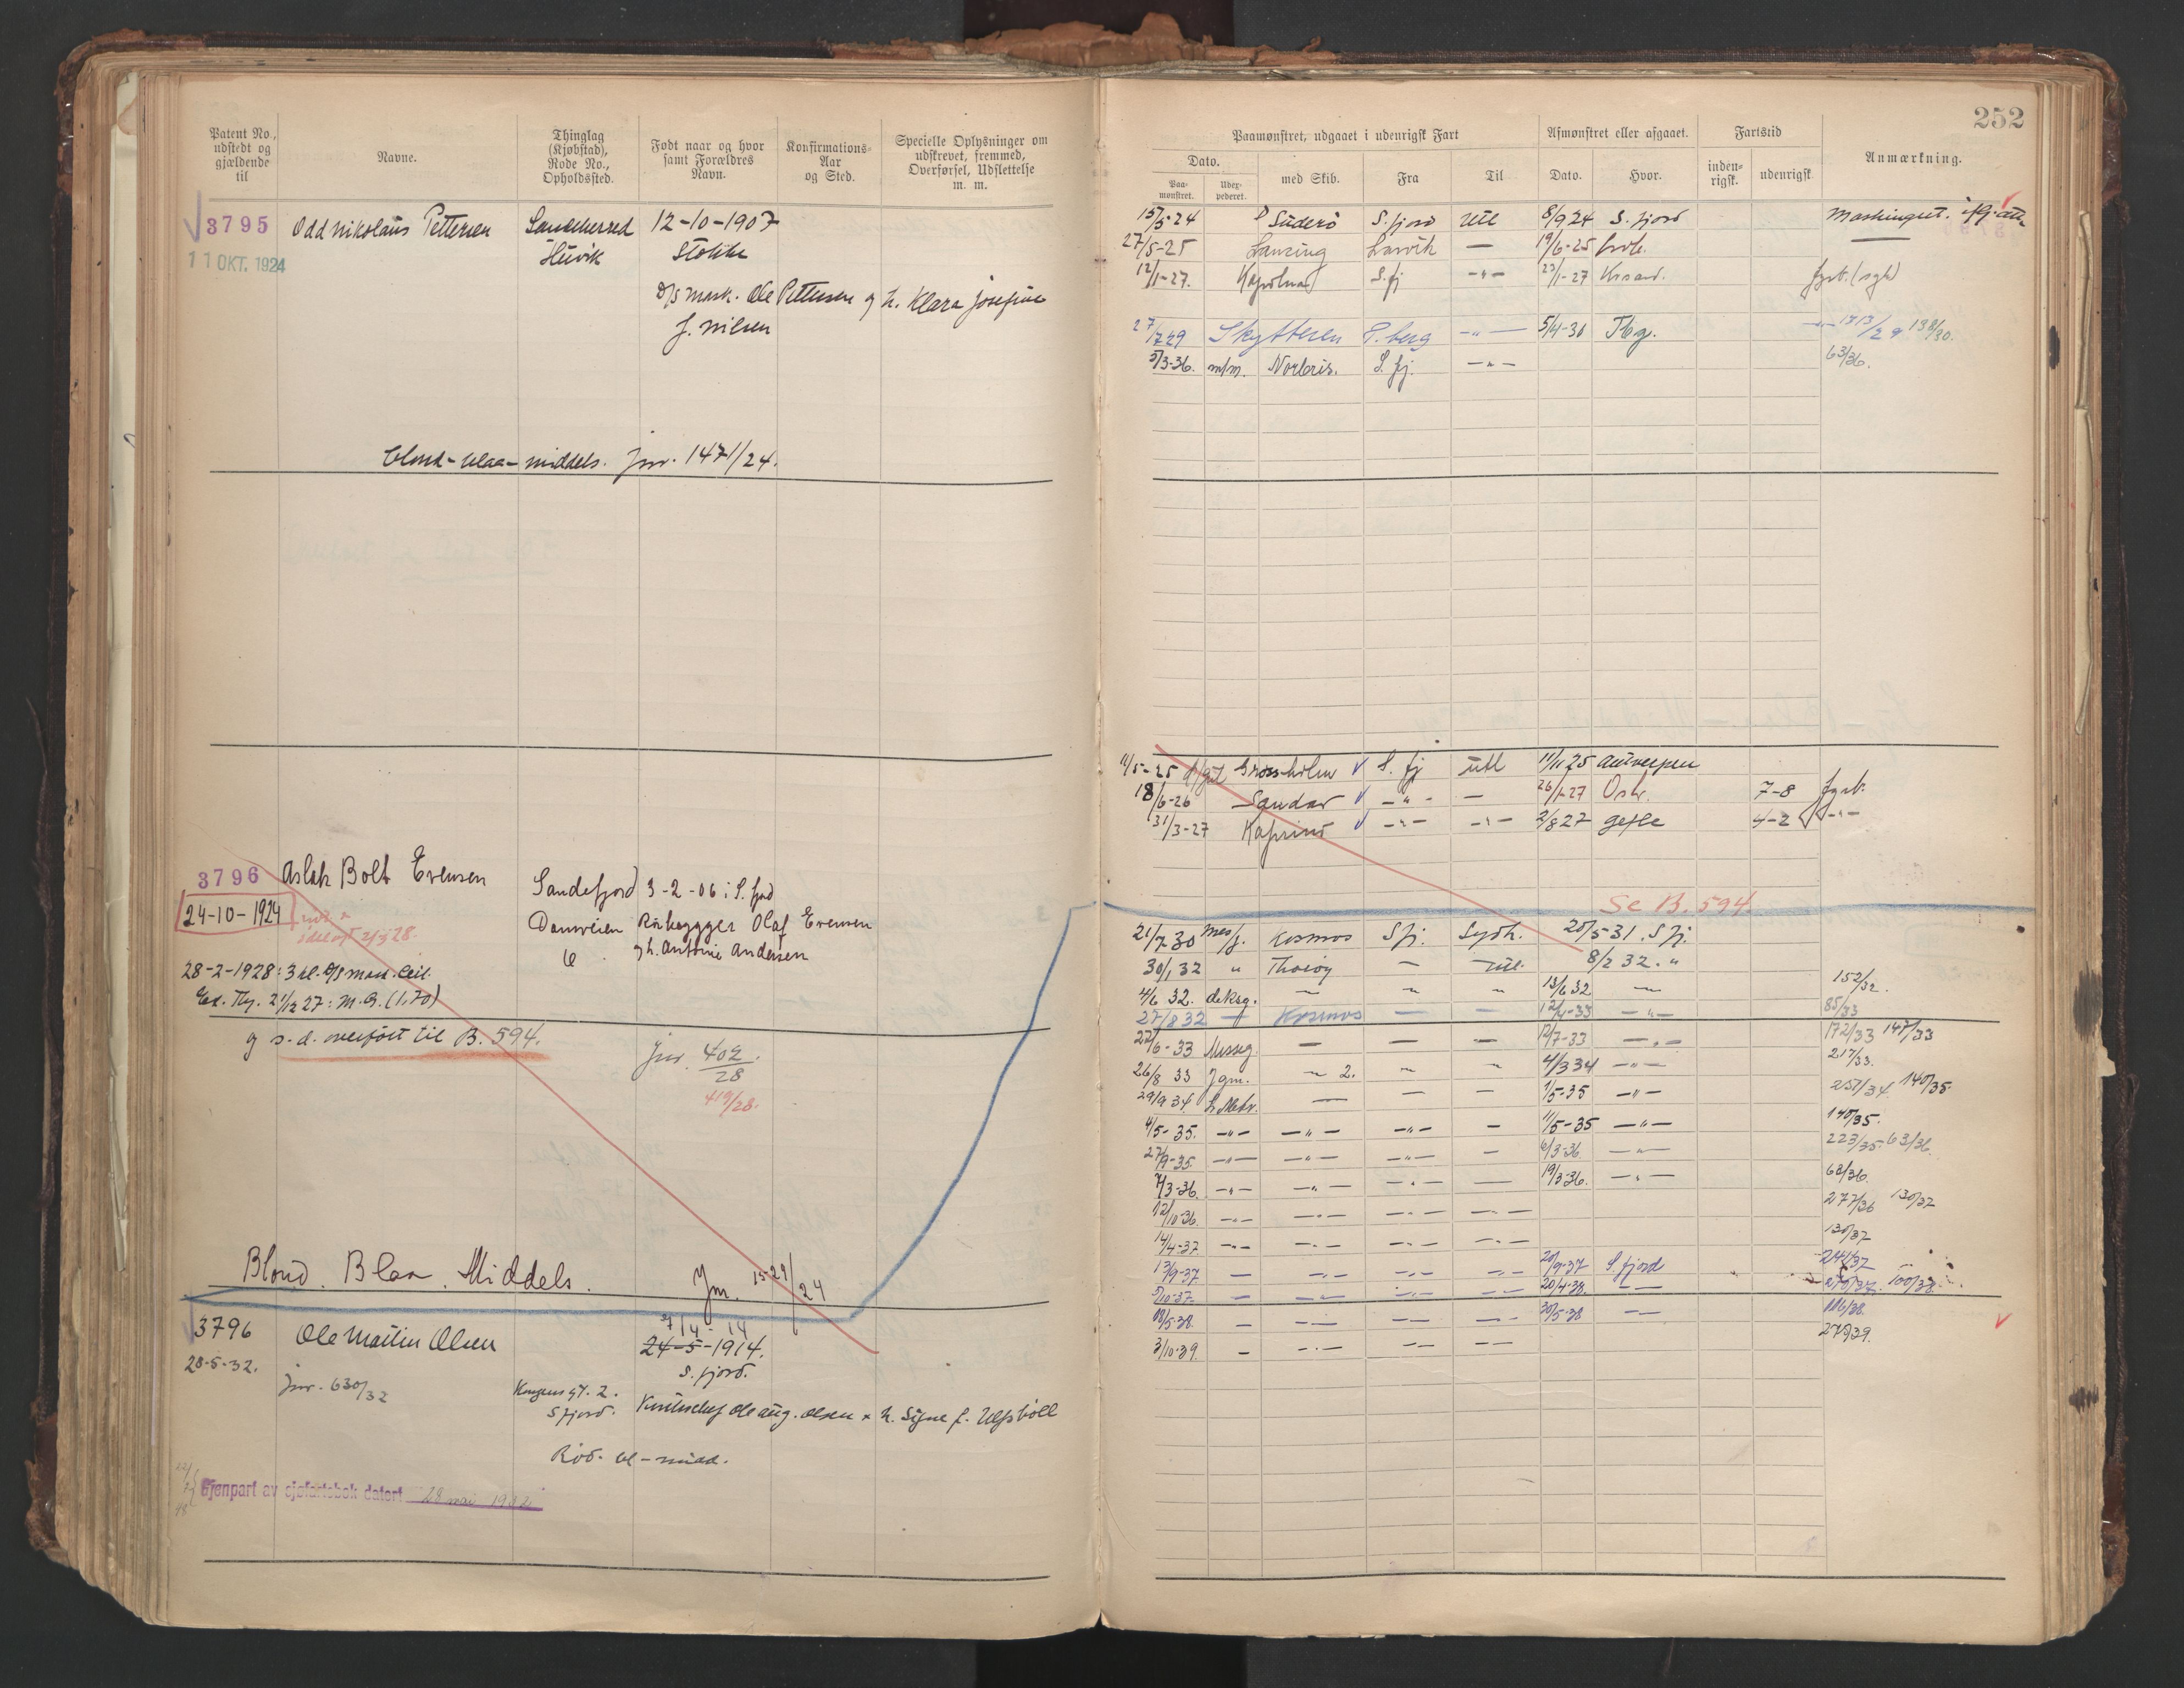 252
Patent No., udstedt og gjældende til
Navne.
Thinglag (Kjøbstad), Rode No., Opholdssted.
Født naar og hvor samt Forældres Navn.
Konfirmations-Aar og Sted.
Specielle Oplysninger om udskrevet, fremmed, Overførsel, Udslettelse m. m.
3795 Odd Nikolaus Pettersen Sandeherred 12-10-1907
11 OKT. 1924 Huvik Stokke
D/S mask. Ole Pettersen g h. Klara Josefine
f. Nilsen
blond-blaa-middels. Jnr. 1471/24.
3796 Aslak Bolt Evensen Sandefjord 3-2-06 i S.fjord
24-10-1924 Damveien Rørlægger Olaf Evensen
6 g h. Antonie Andersen
28-2-1928: 3 kl.
Ex. Tbg. 21/12 27: M.G. (1.70)
g s.d. overført til B. 594.
Jnr. 402/28
419/28.
Blond. Blaa. Middels. Jnr. 1529/24
3796 Ole Martin Olsen 24-5-1914.
28-5-32. S.fjord.
Jnr. 630/32 Kongens gt. 2. S.fjord. Ole Aug. Olsen & h. Signe f.
Rød. bl-midd.
Gjenpart av sjøfartsbok datert 28 mai 1942
Paamønstret, udgaaet i udenrigsk Fart
Afmønstret eller afgaaet.
Fartstid
Anmærkning.
Dato.
Paa-mønstret.
Udex-pederet.
med Skib.
Fra
Til
Dato.
Hvor.
inden-rigsk.
udenrigsk
15/5 24 Süderö S.fjord Utl 8/9 24 S.fjord
27/5-25 Lansing Larvik — 19/6-25
12/1-27. S.fj -"- 27/1-27 Krsand. fyrb.
27/7 29 Skytteren T.berg -"- 5/4-30 Tbg. 138/30.
5/3-36. m/m. Norbris. S.fj. -"- 63/36.
11/5-25 Grossholm S.fj utl 11/11 25 Antwerpen
18/6-26 Sandar -"- — 26/1-27 7-8 fyrb.
31/3-27 -"- -"- 2/8 27 Gefle 4-2 -"-
Se B. 594
21/7 30 Mes/g. Kosmos S.fj. Sydh. 20/5-31. S.fj.
30/1 32 " Thorøy — Utl. 8/2 32. "
4/6 32. deksg. — " " 13/6 32 — 152/32.
27/8 32 — Kosmos — — 12/4-33 -"- 85/33
22/6-33 Messg. — — — 12/7-33 -"- 172/33 147/33
26/8 33 Jgm. — 2. " " 4/3 34 -"- 217/33.
29/9 34. — — — 1/5-35 -"- 251/34. 140/35.
4/5-35. -"- -"- -"- — 11/5-35 -"- 140/35.
27/9-35. -"- -"- -"- — 6/3-36. -"- 223/35. 63/36.
7/3-36. -"- -"- -"- — 19/3-36. -"- 68/36.
12/10-36. -"- -"- -"- -"- 277/36 130/37
14/4-37. -"- -"- -"- -"- 130/37
13/9-37 — -"- -"- -"- 20/9-37 S.fjord 241/37
5/10-37. — -"- -"- -"- 20/4-38. — 270/37. 100/38.
18/5-38. — -"- -"- -"- 30/5-38 — 116/38.
3/10-39. — -"- — — 275/39.